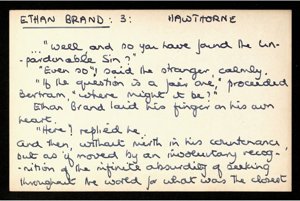 ETHAN BRAND: 3: HAWTHORNE
..."Well, and so you have found the Un-
-pardonable Sin?"
"Even so", said the stranger, calmly.
"If the question is a fair one," proceeded
Bertram, "where might it be?"
Ethan Brand laid his finger on his own
heart.
"Here", replied he.
And then, without mirth in his countenance,
but as if moved by an involuntary recog-
-nition of the infinite absurdity of seeking
throughout the world for what was the closest